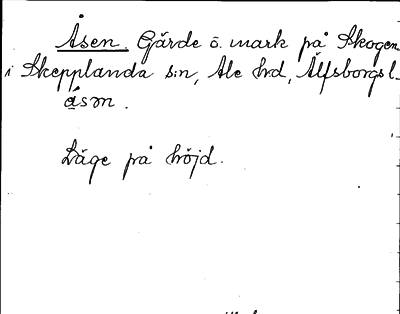 Åsen. Gärde o. mark på Skogen
i Skepplanda s:n, Ale hrd, Älfsborgs l.
åsm.
Läge på höjd.